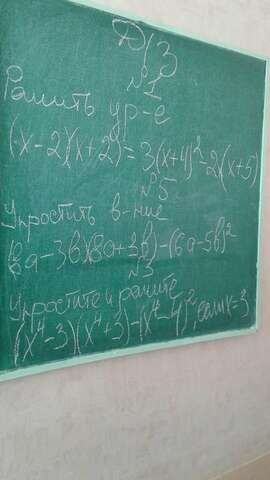 Д/З
№1
Решить ур-е
(x-2)(x+2)=3(x+4)²-2x(x+5)
№5
Упростить в-ние
(8a-3b)(8a+3b)-(6a-5b)²
№3
Упростите и решите
(x⁴-3)(x⁴+3)-(x⁴-4)², если x=3